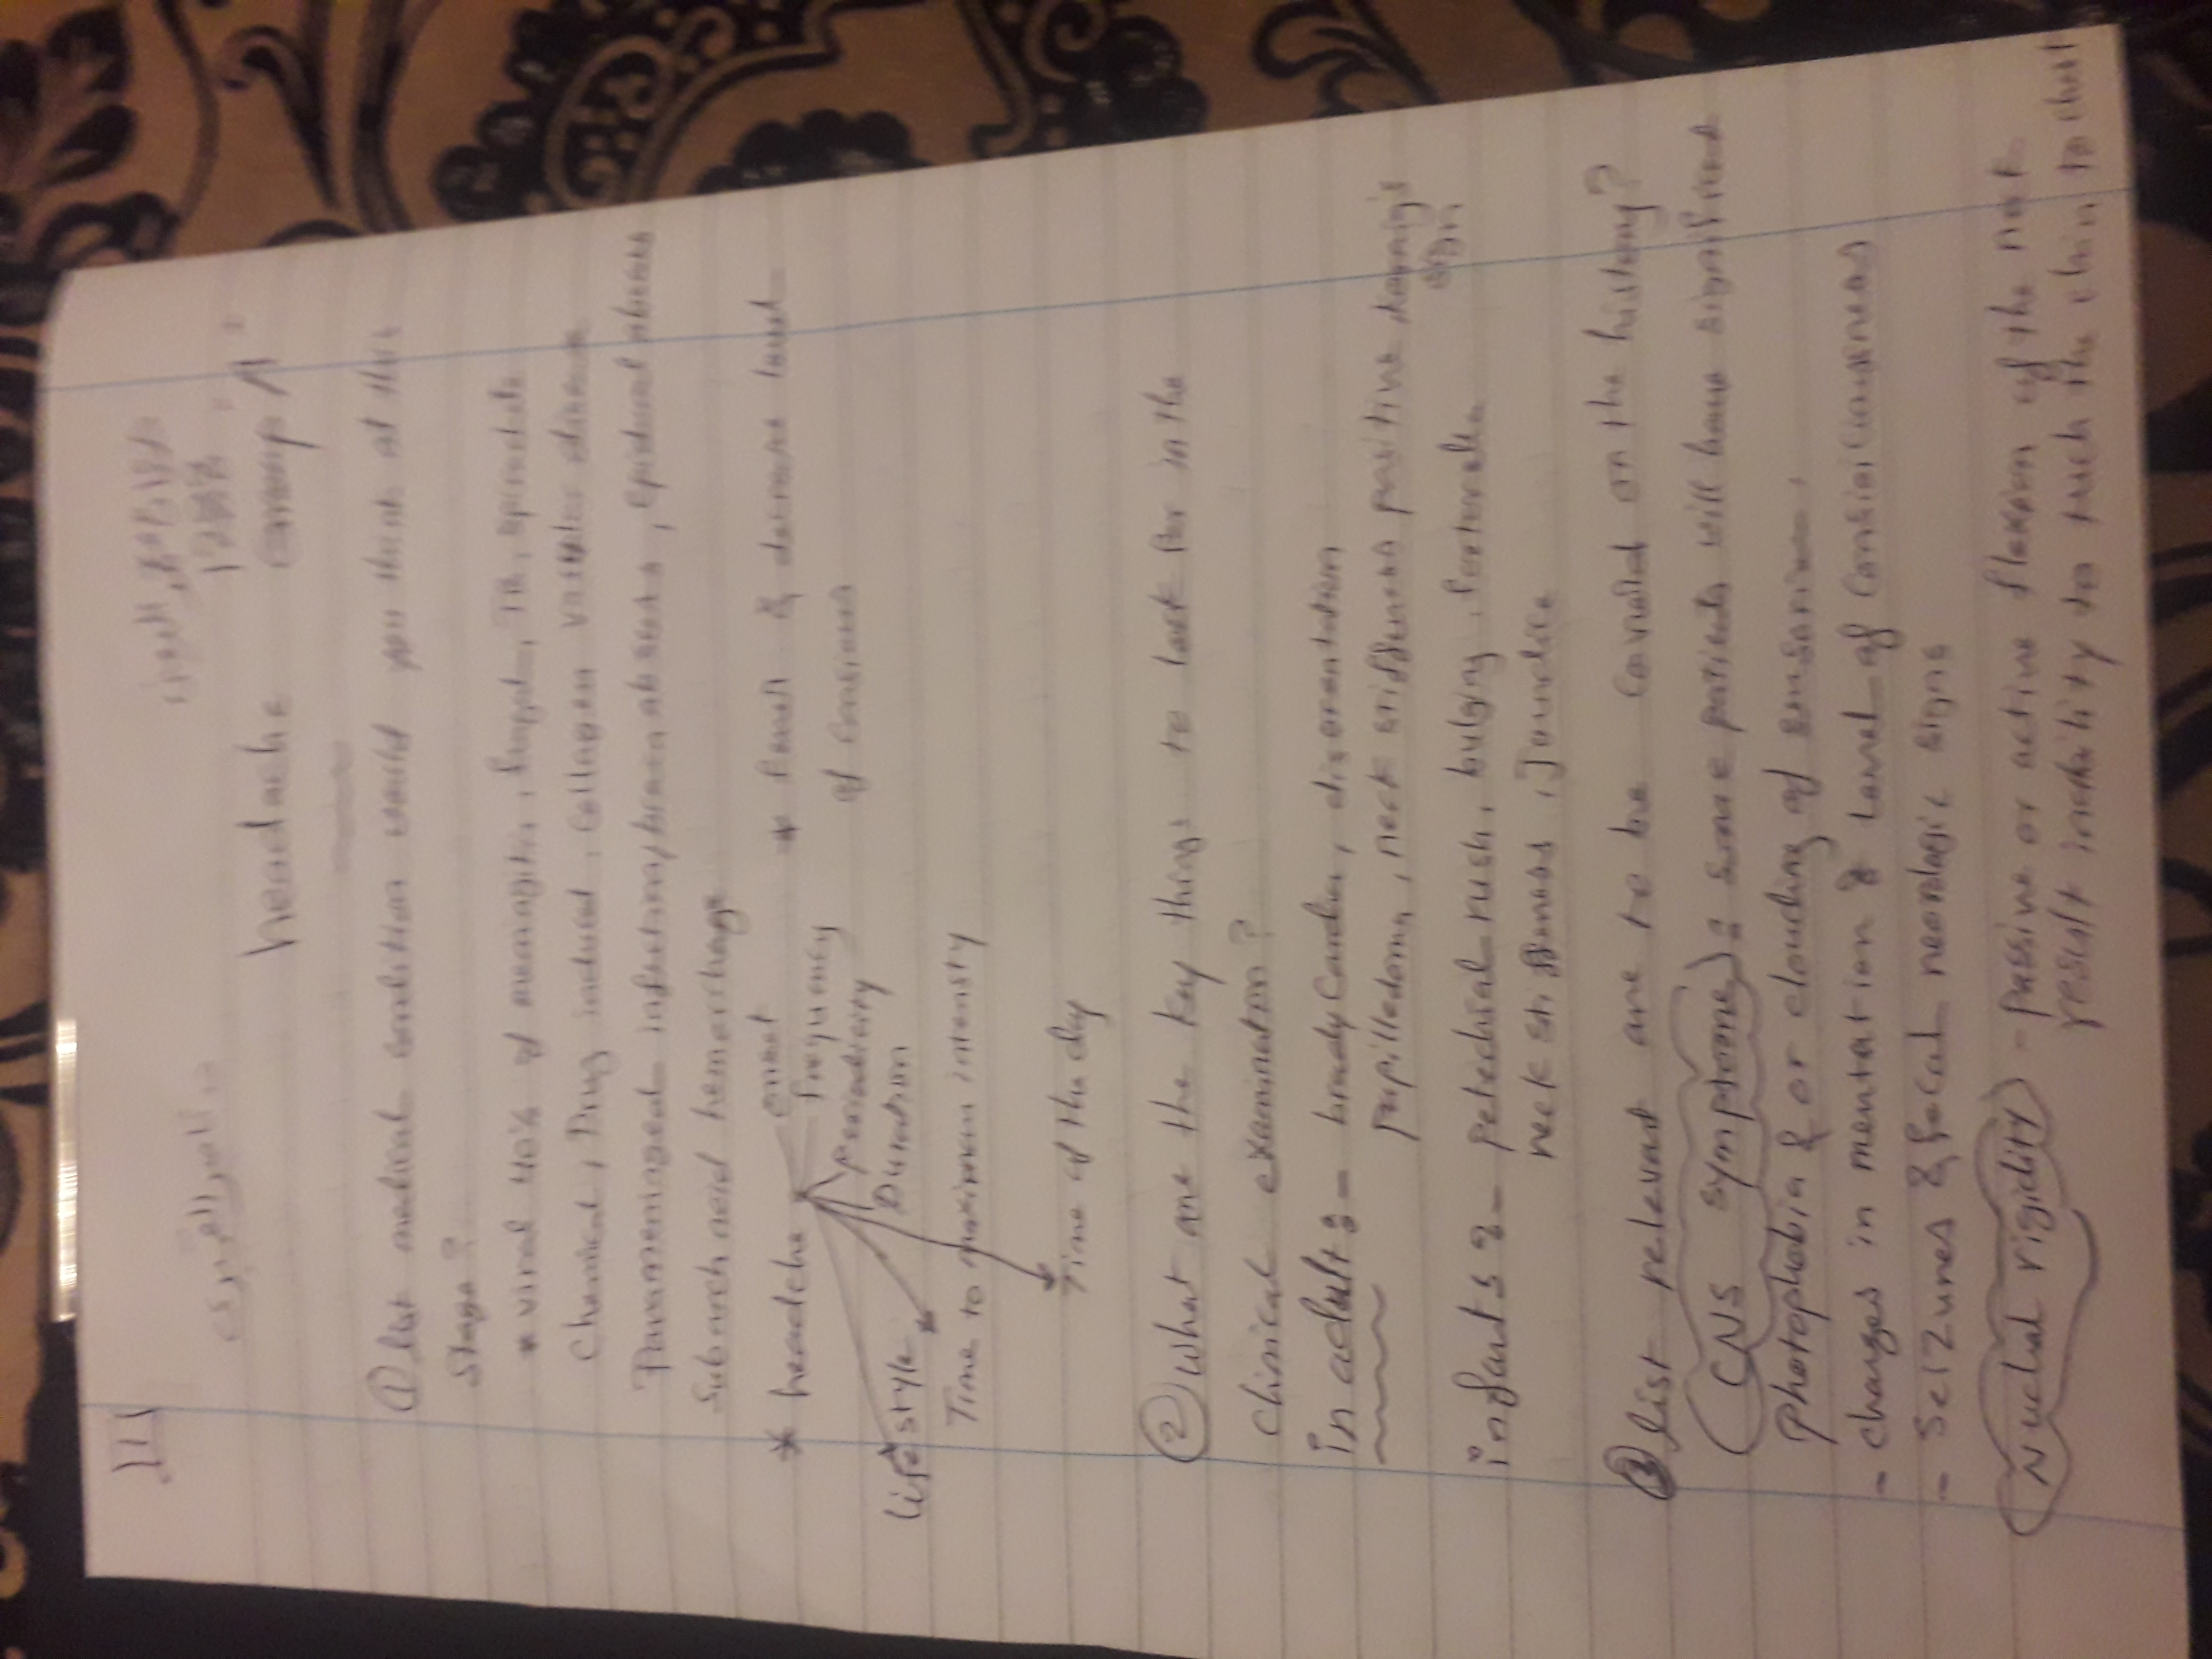 III
headache
group A
① list medical condition would you think at this
stage?
* viral 40% of meningitis, fungal, TB, spirochete
Chemical, Drug induced, collagen disease
Parameningeal infection/brain abscess, epidural abscess
Subarachnoid hemorrhage
* headche
onset
frequency
periodicity
Duration
life style
Time to maximum intensity
Time of the day
* Fever & decrease level
of consious
② What are the key things to look for in the
clinical examination?
in adult :- bradycardia, disorentation
papilledema, neck stiffness positive kernig's
sign
infants :- petechial rush, bulging, fontanelle
neck stiffness, Jaundice
③ list relevant are to be coverd on the history?
CNS symptoms : some patients will have significant
photophobia & or clouding of sensorium.
- changes in mentation & level of consiousness
- SeiZures & focal neorologic signs
Nuchal rigidity - passive or active flexion of the nek
result inability to touch the chin to chest